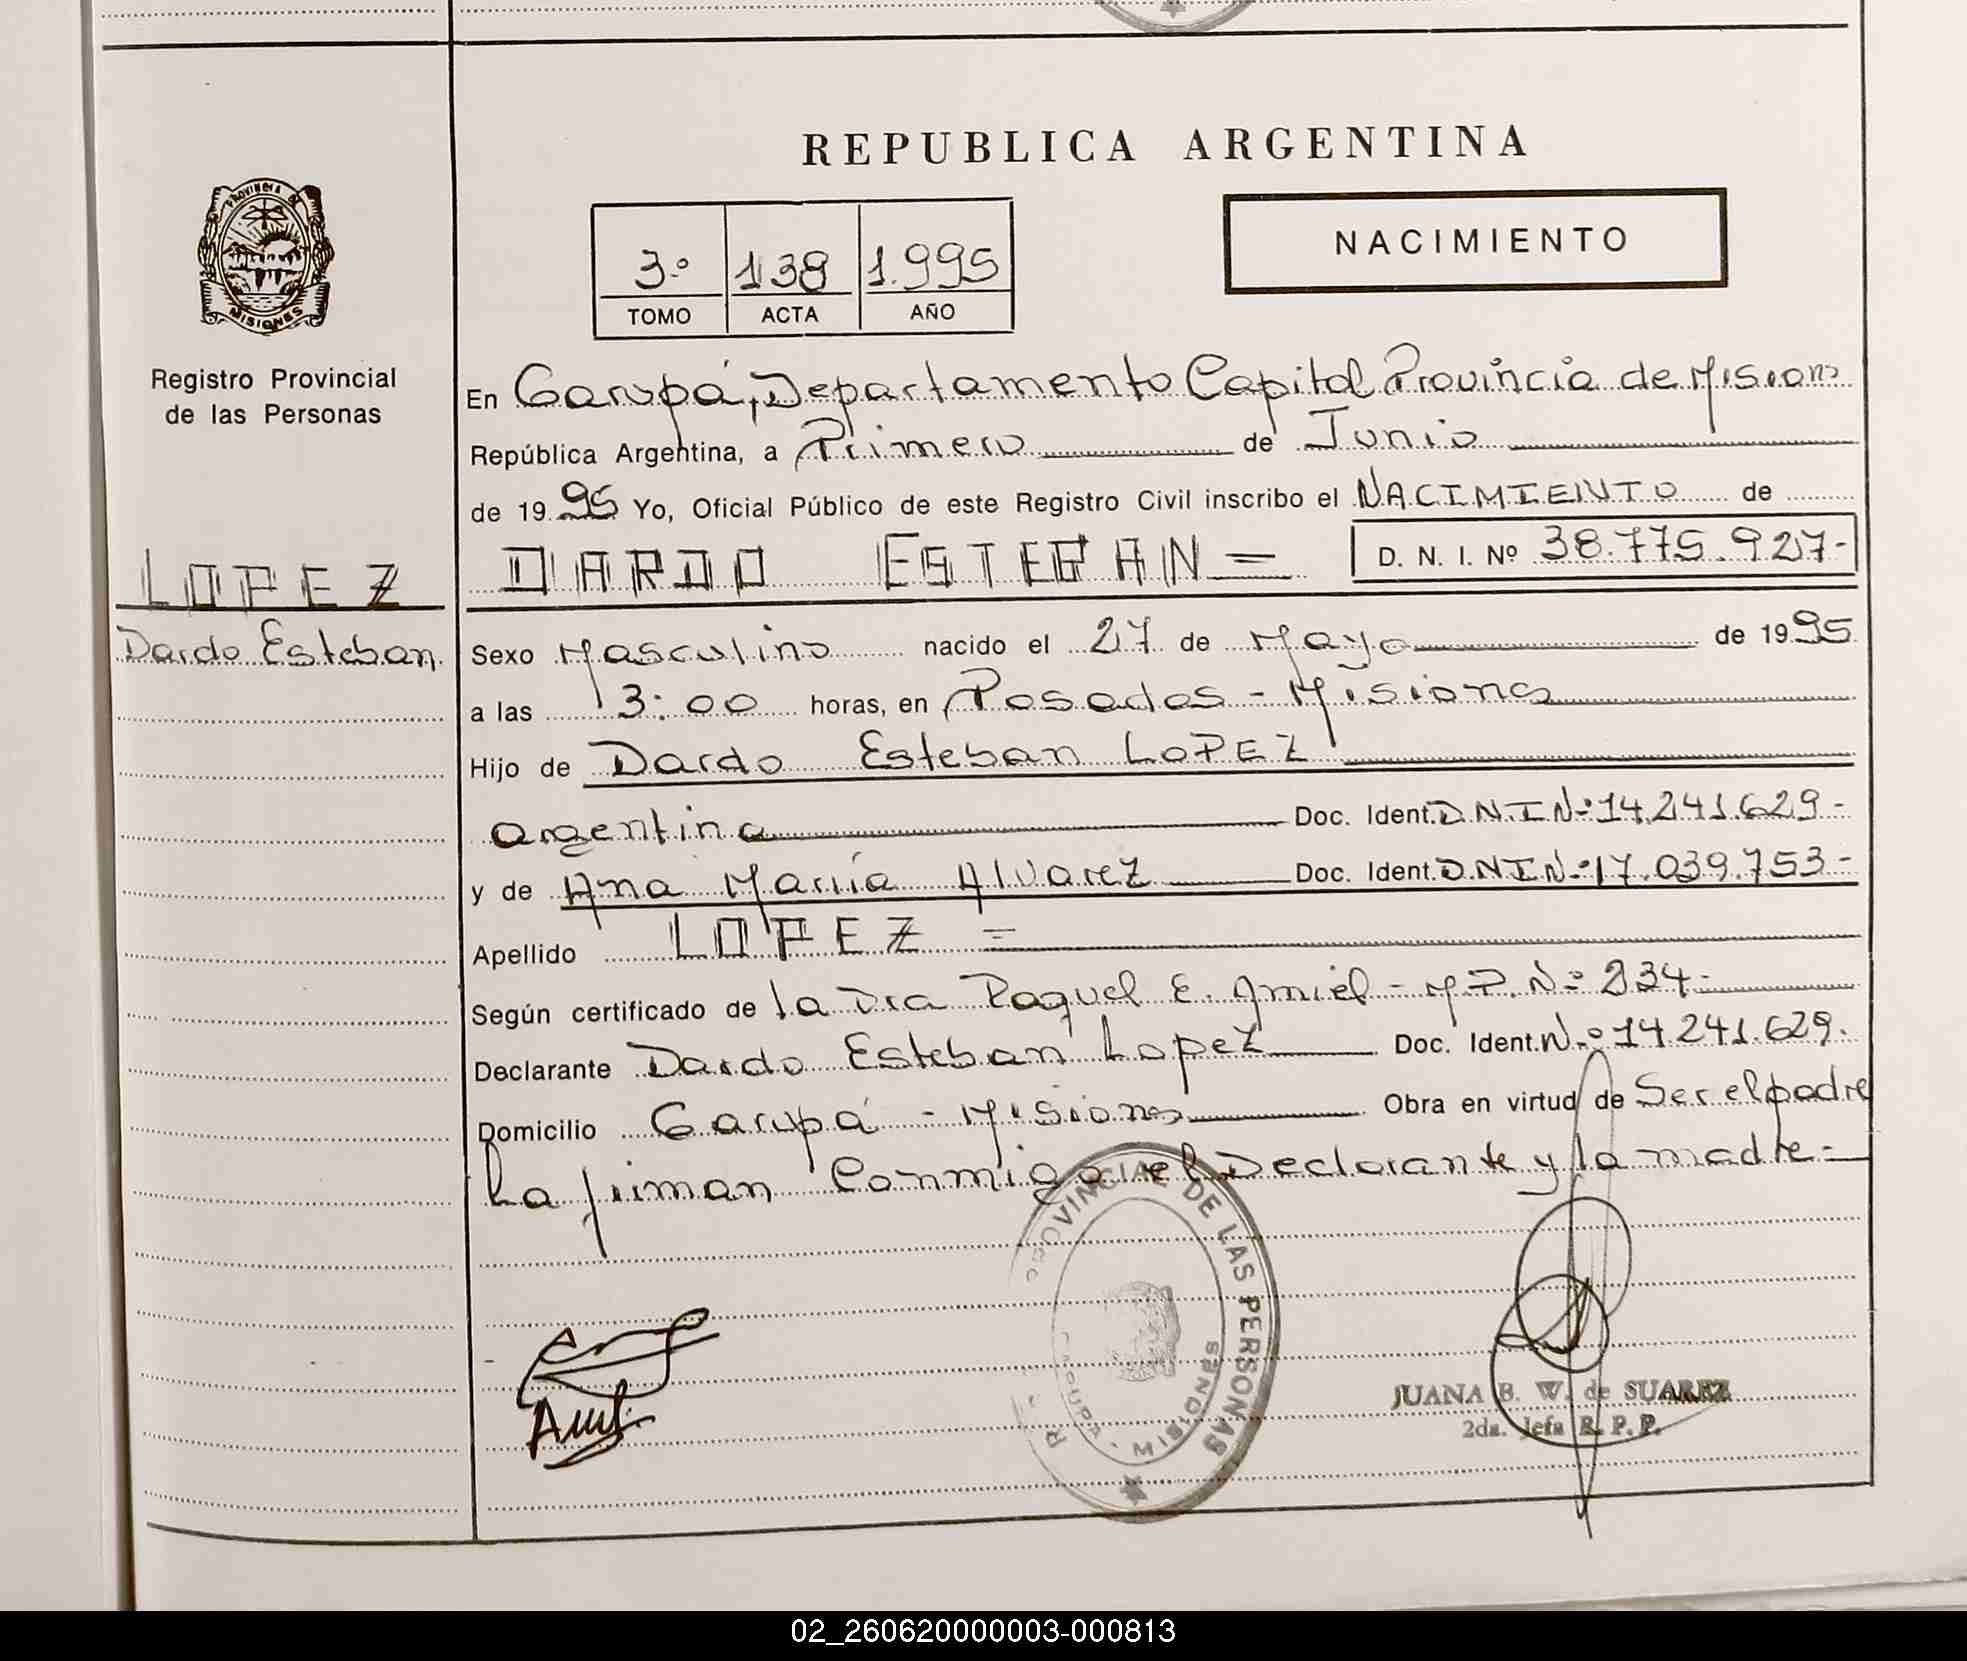 REPUBLICA ARGENTINA
PROVINCIA DE
MISIONES
Registro Provincial
de las Personas
3º 138 1.995
TOMO ACTA AÑO
NACIMIENTO
En Garupá, Departamento Capital Provincia de Misiones
República Argentina, a Primero de Junio
de 1995 Yo, Oficial Público de este Registro Civil inscribo el NACIMIENTO de
LOPEZ
DARDO ESTEBAN = D. N. I. Nº 38.775.927-
Dardo Esteban
Sexo Masculino nacido el 27 de Mayo de 1995
a las 3:00 horas, en Posadas - Misiones
Hijo de Dardo Esteban LOPEZ
argentina Doc. Ident. D.N.I Nº 14.241.629-
y de Ana María Alvarez Doc. Ident. D.N.I Nº 17.039.753-
Apellido LOPEZ =
Según certificado de la Dra Raquel E. Amiel - M.P. Nº 234-
Declarante Dardo Esteban Lopez Doc. Ident. Nº 14.241.629.
Domicilio Garupá - Misiones Obra en virtud de Ser el padre
La firman Conmigo el Declarante y la madre -
PROVINCIAL DE LAS PERSONAS
GARUPA - MISIONES
JUANA B. W. de SUAREZ
2da. Jefa R. P. P.
02_260620000003-000813